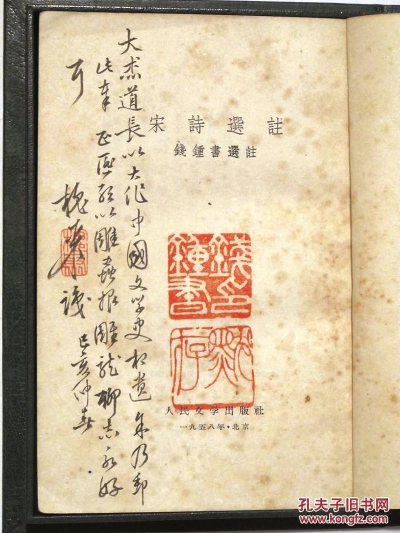 大杰道長以大作中國文學史相遺余乃郵
此奉正以雕蟲报雕龍聊志永好
耳
槐聚識
己亥仲春
宋詩選註
錢鍾書選註
錢印鍾書
默存
人民文学出版社
一九五八年·北京
孔夫子旧书网